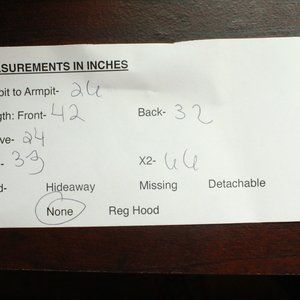 ASUREMENTS IN INCHES
pit to Armpit- 26
gth: Front- 42 Back- 32
ve- 24
- 33 X2- 66
d- Hideaway Missing Detachable
None Reg Hood